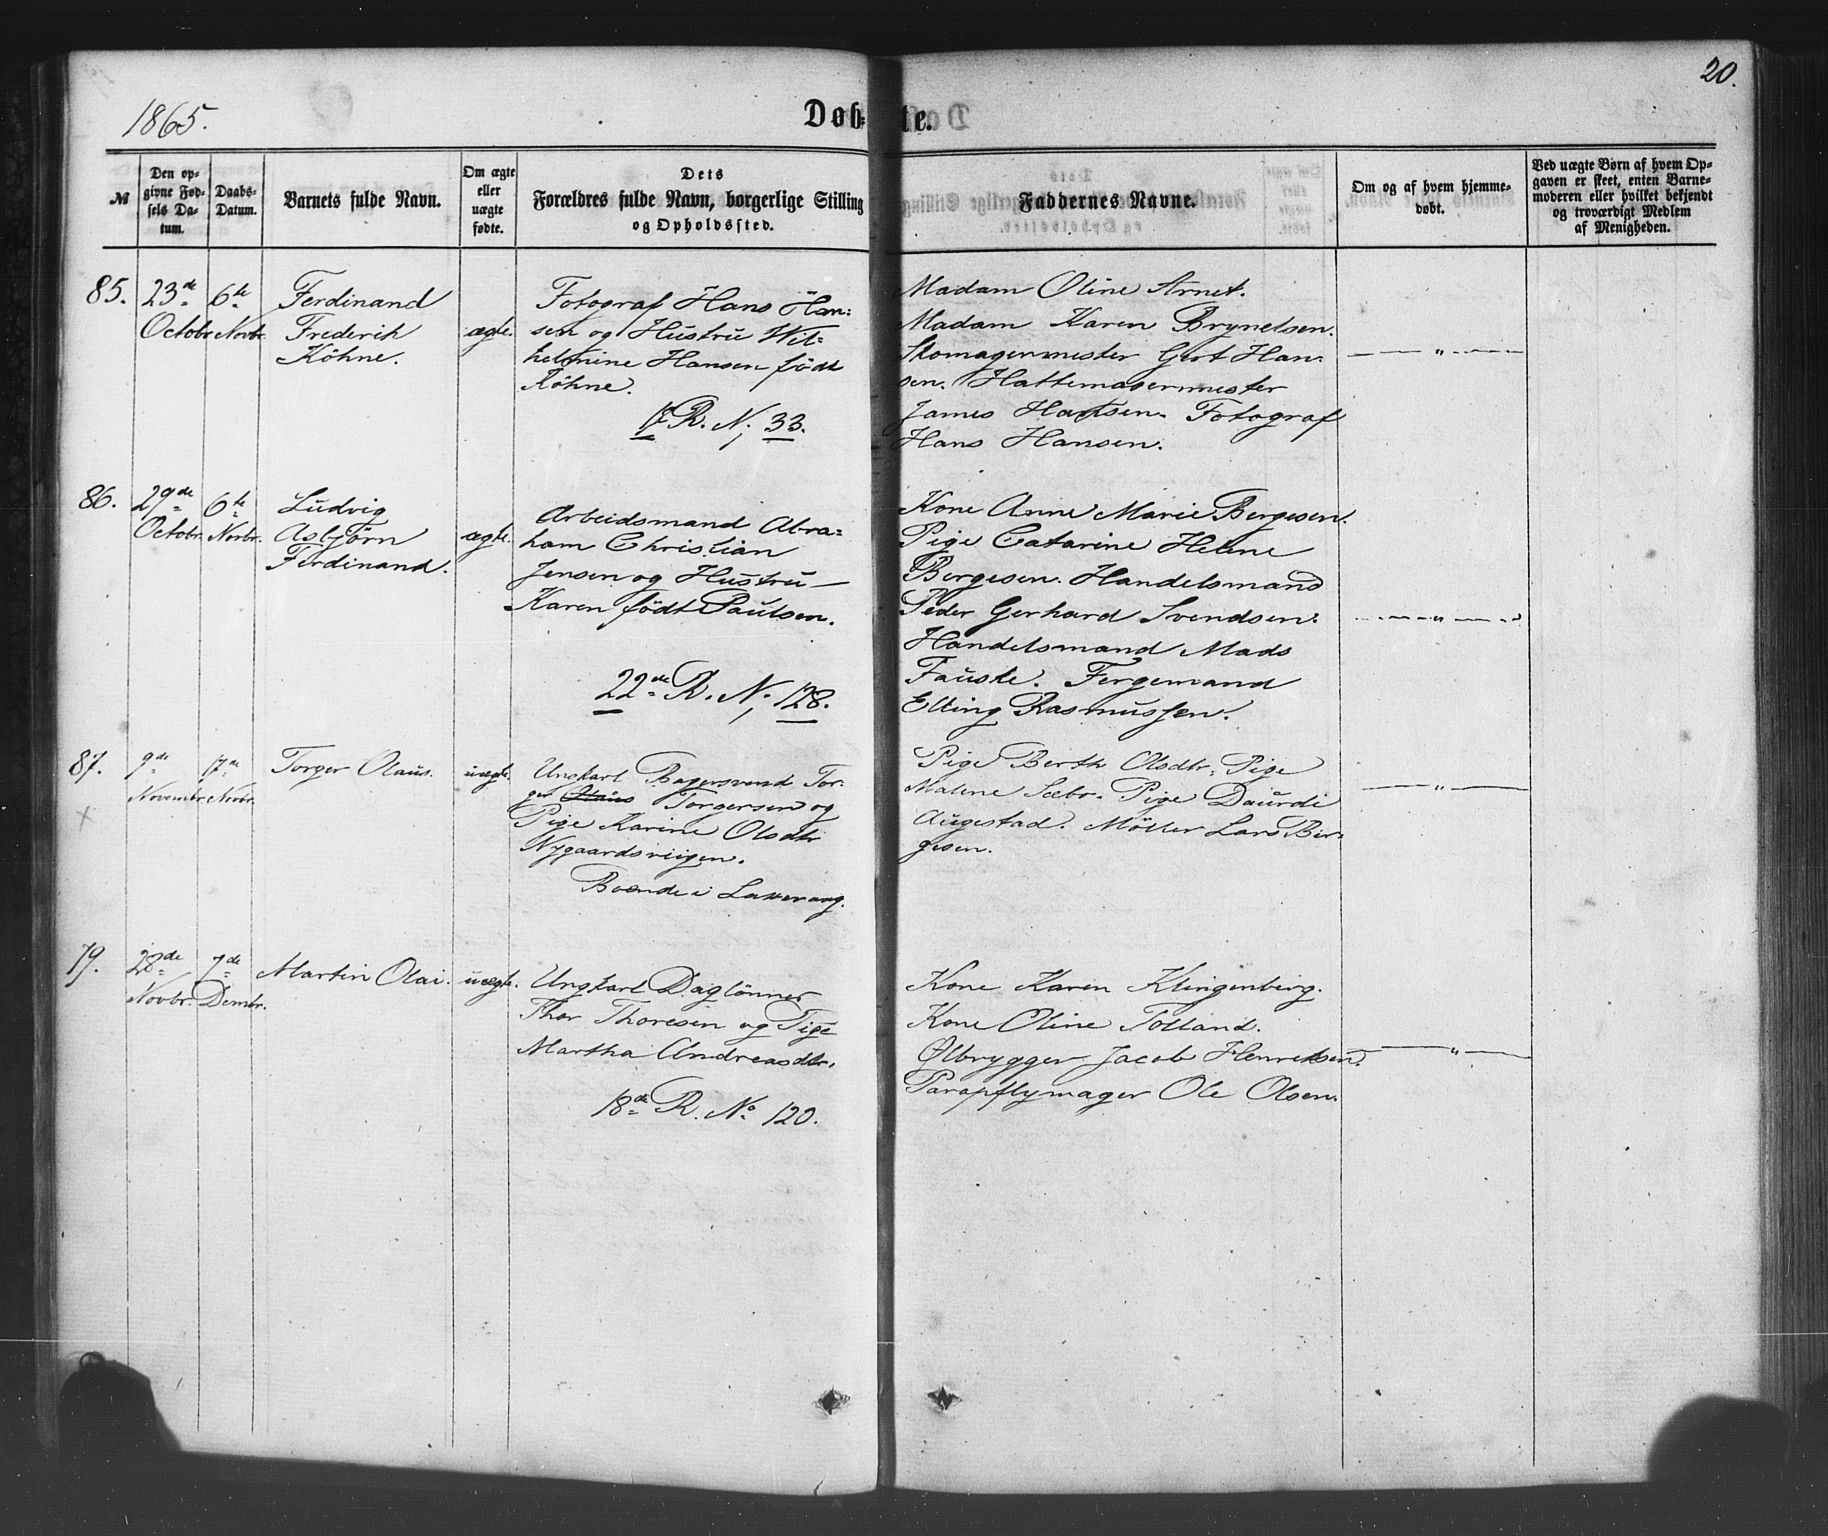 20.
1865.
Døb-
te.
№
Den op-
givne Fød-
sels Da-
tum.
Daabs-
Datum.
Barnets fulde Navn.
Om ægte
eller
uægte
fødte.
Dets
Forældres fulde Navn, borgerlige Stilling
og Opholdssted.
Faddernes Navne.
Om og af hvem hjemme-
døbt.
Ved uægte Børn af hvem Op-
gaven er skeet, enten Barne-
moderen eller hvilket bekjendt
og troværdigt Medlem
af Menigheden.
85.
23de
Octobr
6te
Novbr.
Ferdinand
Frederik
Köhne.
ægte.
Fotograf Hans Han-
sen og Hustru Wil-
helmine Hansen födt
Köhne.
R. N. 33.
Madam Oline Arnet.
Madam Karen Brynelsen.
Skomagermester Gert Han-
sen. Hattemagermester
James Hansen. Fotograf
Hans Hansen.
— — " — —
86.
29de
Octobr.
6te
Novbr.
Ludvig
Asbjörn
Ferdinand.
ægte.
Arbeidsmand Abra-
ham Christian
Jensen og Hustru —
Karen födt Paulsen.
22de R. N. 128.
Kone Anne Marie Bergesen.
Pige Catarine Helene
Bergesen. Handelsmand
Peder Gerhard Svendsen.
Handelsmand Mads
Fauske. Fergemand
Elling Rasmussen.
— — " — —
87.
9de
Novembr.
17de
Novbr.
Torger Olaus.
uægte.
Ungkarl Bagersvend Tor-
ger Olaus Torgersen og
Pige Karine Olsdtr
Nygaardsviigen.
Boende i
Pige Berth Olsdtr. Pige
Malene Sæbø. Pige
Augestad. Möller Lars Bir-
gesen.
— " —
79.
28de
Novbr.
7de
Dembr.
Martin Olai.
uægte.
Ungkarl Daglönner
Thor Thoresen og Pige
Martha Andreasdtr.
18de R. No 120.
Kone Karen Klingenberg.
Kone Oline Tolland.
Ølbrygger Jacob Henriksen.
Paraplymager Ole Olsen.
— " —